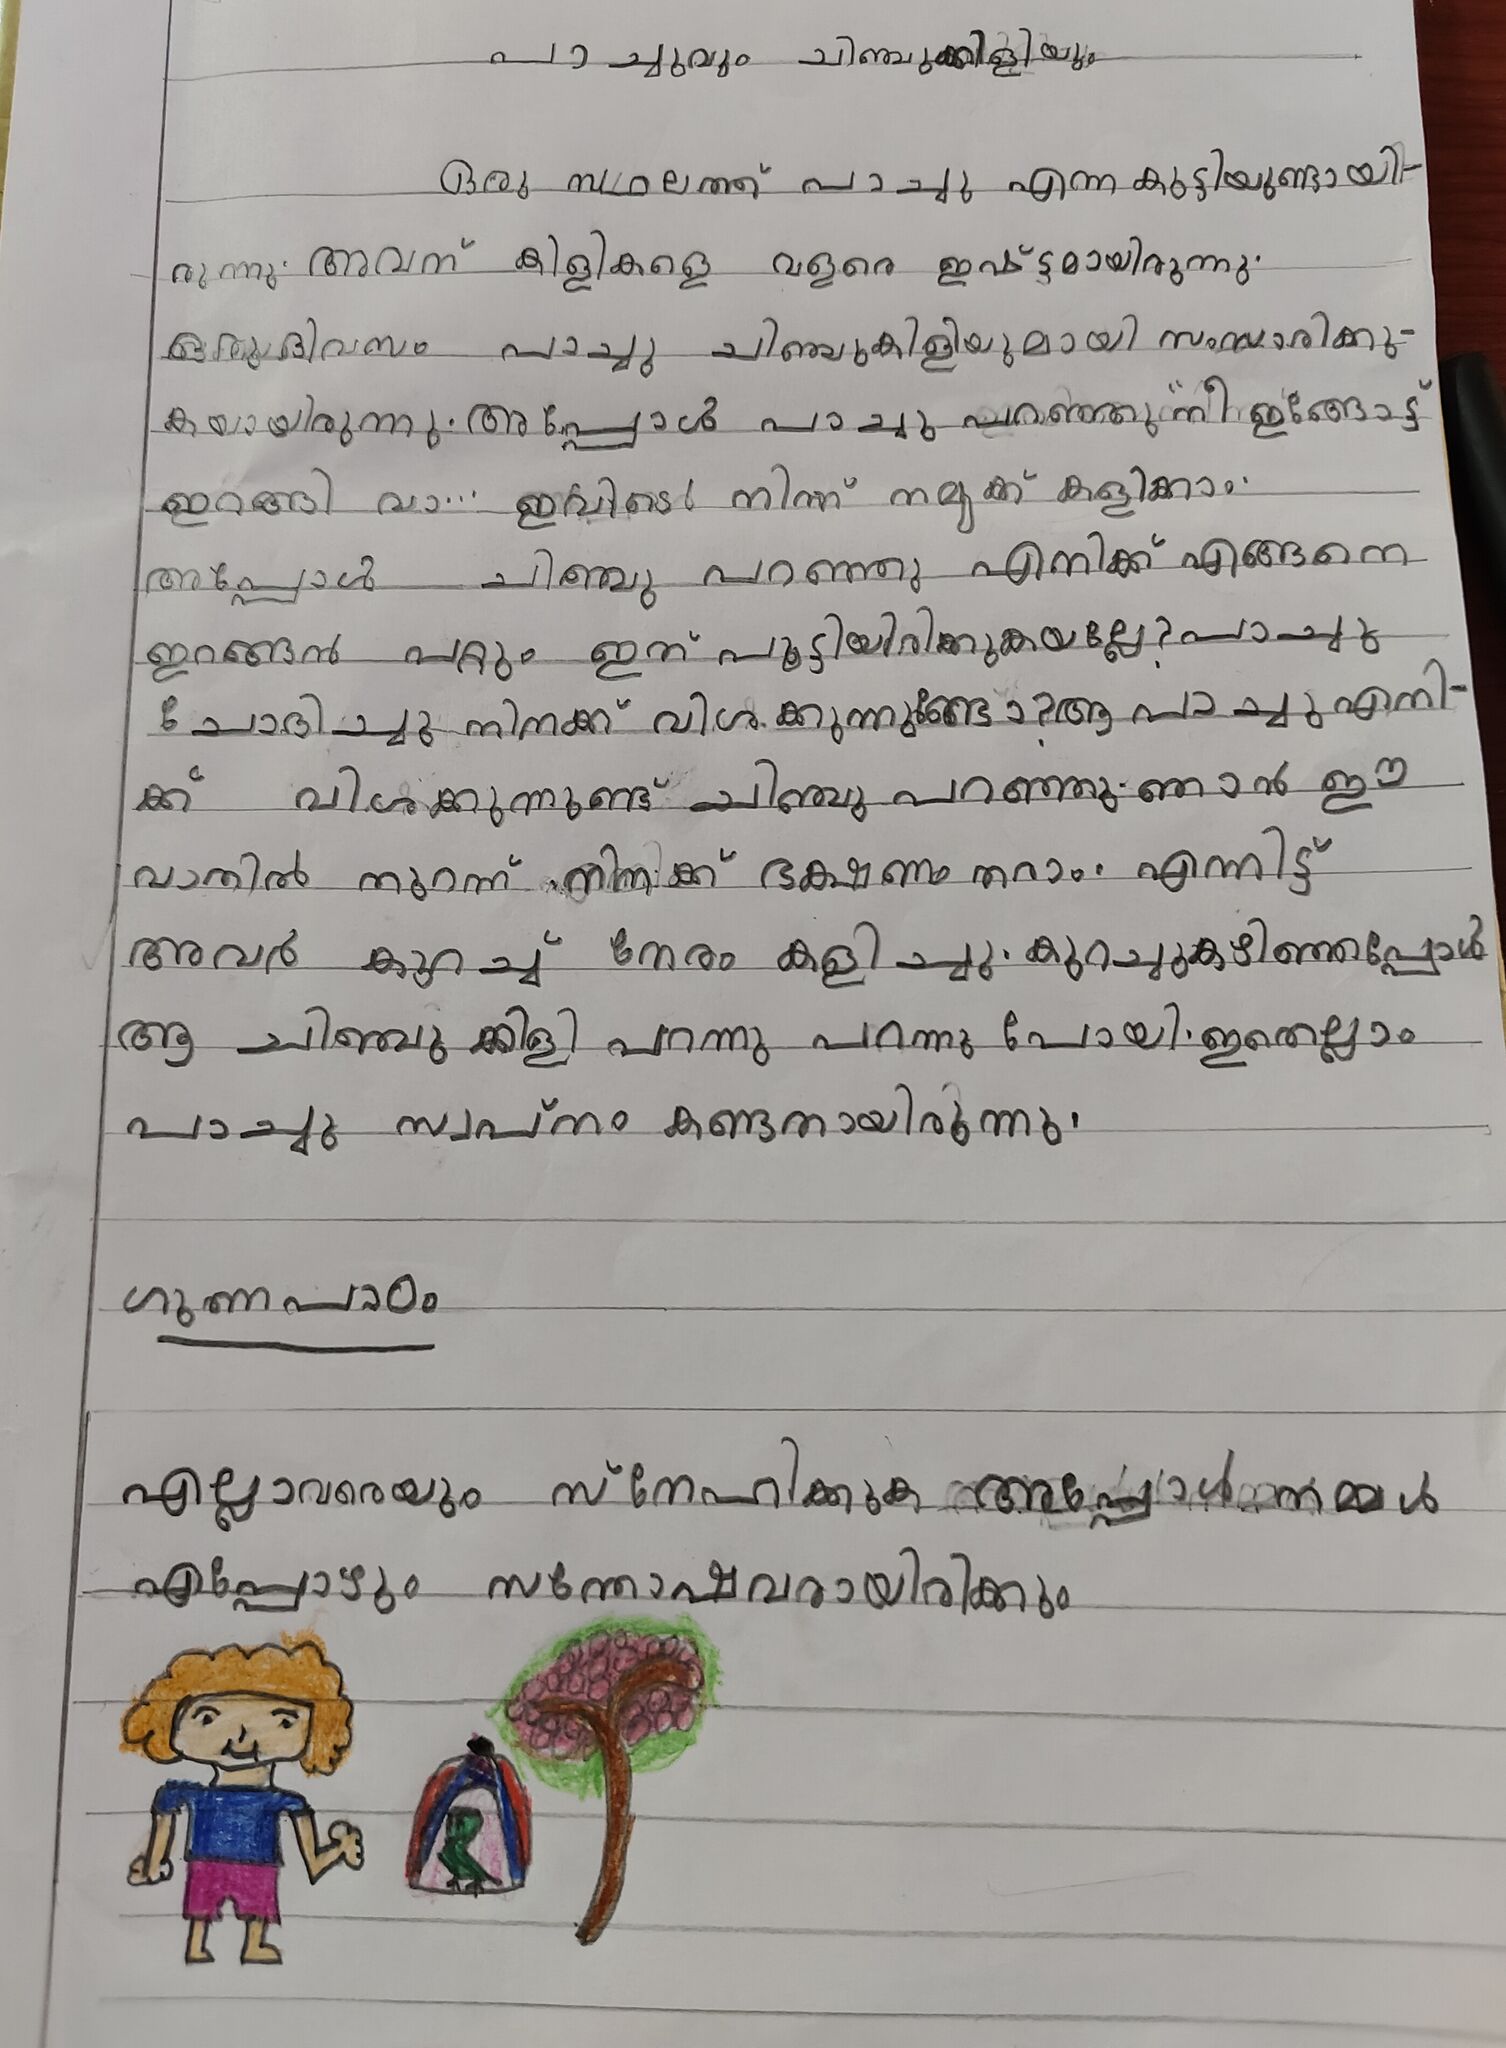 പാച്ചുവും ചിഞ്ചുക്കിളിയും
ഒരു സ്ഥലത്ത് പാച്ചു എന്ന കുട്ടിയുണ്ടായി-
രുന്നു. അവന് കിളികളെ വളരെ ഇഷ്ട്ടമായിരുന്നു.
ഒരുദിവസം പാച്ചു ചിഞ്ചുകിളിയുമായി സംസാരിക്കു-
കയായിരുന്നു. അപ്പോൾ പാച്ചു പറഞ്ഞു "നീ ഇങ്ങോട്ട്
ഇറങ്ങി വാ... ഇവിടെ നിന്ന് നമുക്ക് കളിക്കാം.
അപ്പോൾ ചിഞ്ചു പറഞ്ഞു എനിക്ക് എങ്ങനെ
ഇറങ്ങൻ പറ്റും ഇത് പൂട്ടിയിരിക്കുകയല്ലേ? പാച്ചു
ചോദിച്ചു നിനക്ക് വിശക്കുന്നുണ്ടോ? ആ പാച്ചു എനി-
ക്ക് വിശക്കുന്നുണ്ട് ചിഞ്ചു പറഞ്ഞു. ഞാൻ ഈ
വാതിൽ തുറന്ന് നിനക്ക് ഭക്ഷണം തരാം. എന്നിട്ട്
അവർ കുറച്ച് നേരം കളിച്ചു. കുറച്ചുകഴിഞ്ഞപ്പോൾ
ആ ചിഞ്ചുക്കിളി പറന്നു പറന്നു പോയി. ഇതെല്ലാം
പാച്ചു സ്വപ്നം കണ്ടതായിരുന്നു.
ഗുണപാഠം
എല്ലാവരെയും സ്നേഹിക്കുക അപ്പോൾ നമ്മൾ
എപ്പോഴും സന്തോഷവരായിരിക്കും